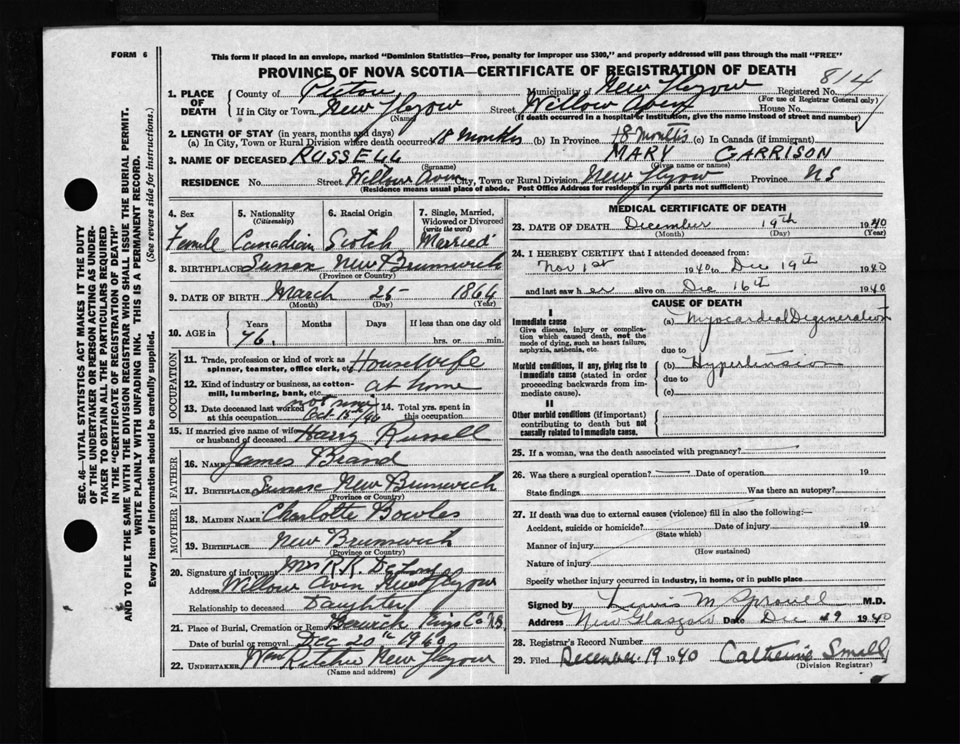 FORM 6
This form if placed in an envelope, marked "Dominion Statistics—Free, penalty for improper use $300," and properly addressed will pass through the mail "FREE"
PROVINCE OF NOVA SCOTIA—CERTIFICATE OF REGISTRATION OF DEATH
SEC. 46—VITAL STATISTICS ACT MAKES IT THE DUTY
OF THE UNDERTAKER OR PERSON ACTING AS UNDER-
TAKER TO OBTAIN ALL THE PARTICULARS REQUIRED
IN THE "CERTIFICATE OF REGISTRATION OF DEATH"
AND TO FILE THE SAME WITH THE DIVISION REGISTRAR WHO SHALL ISSUE THE BURIAL PERMIT.
WRITE PLAINLY WITH UNFADING INK. THIS IS A PERMANENT RECORD.
Every item of information should be carefully supplied. (See reverse side for instructions.)
1. PLACE OF DEATH County of Pictou Municipality of New Glasgow Registered No. 814
(For use of Registrar General only)
If in City or Town New Glasgow Street Willow Aven House No.
(Name) (If death occurred in a hospital or institution, give the name instead of street and number)
2. LENGTH OF STAY (in years, months and days)
(a) In City, Town or Rural Division where death occurred 18 months (b) In Province 18 months (c) In Canada (if immigrant)
3. NAME OF DECEASED RUSSELL MARY GARRISON
(Surname) (Given name or names)
RESIDENCE No. Street Willow Aven City, Town or Rural Division New Glasgow Province NS
(Residence means usual place of abode. Post Office Address for residents in rural parts not sufficient)
4. Sex Female
5. Nationality (Citizenship) Canadian
6. Racial Origin Scotch
7. Single, Married, Widowed or Divorced (write the word) Married
8. BIRTHPLACE Sussex New Brunswick
(Province or Country)
9. DATE OF BIRTH March 25 1864
(Month) (Day) (Year)
10. AGE in Years 76. Months Days If less than one day old hrs. or min.
OCCUPATION
11. Trade, profession or kind of work as spinner, teamster, office clerk, etc. Housewife
12. Kind of industry or business, as cotton-mill, lumbering, bank, etc. at home
13. Date deceased last worked at this occupation Oct 15th/40 14. Total yrs. spent in this occupation
15. If married give name of wife or husband of deceased Harry Russell
FATHER
16. Name James Brand
17. Birthplace Sussex New Brunswick
(Province or Country)
MOTHER
18. Maiden Name Charlotte Bowles
19. Birthplace New Brunswick
(Province or Country)
20. Signature of informant Mrs R.R.
Address Willow Aven New Glasgow
Relationship to deceased Daughter
21. Place of Burial, Cremation or Removal Berwick Kings Co N.B.
Date of burial or removal Dec 20th 1940
22. UNDERTAKER Wm Ritchie New Glasgow
(Name and address)
MEDICAL CERTIFICATE OF DEATH
23. DATE OF DEATH December 19th 1940
(Month) (Day) (Year)
24. I HEREBY CERTIFY that I attended deceased from:
Nov 1st 1940 to Dec 19th 1940
and last saw her alive on Dec 16th 1940
CAUSE OF DEATH
I
Immediate cause
Give disease, injury or complication which caused death, not the mode of dying, such as heart failure, asphyxia, asthenia, etc.
(a) Myocardial Degeneration
due to
Morbid conditions, if any, giving rise to immediate cause (stated in order proceeding backwards from immediate cause).
(b) Hypertension
due to
(c)
II
Other morbid conditions (if important) contributing to death but not causally related to immediate cause.
25. If a woman, was the death associated with pregnancy?
26. Was there a surgical operation? Date of operation 19
State findings Was there an autopsy?
27. If death was due to external causes (violence) fill in also the following:—
Accident, suicide or homicide? Date of injury 19
(State which)
Manner of injury
(How sustained)
Nature of injury
Specify whether injury occurred in industry, in home, or in public place
Signed by Lewis M Sprowell M.D.
Address New Glasgow Date Dec 19 1940
28. Registrar's Record Number
29. Filed December 19 1940 Catherine Small
(Division Registrar)